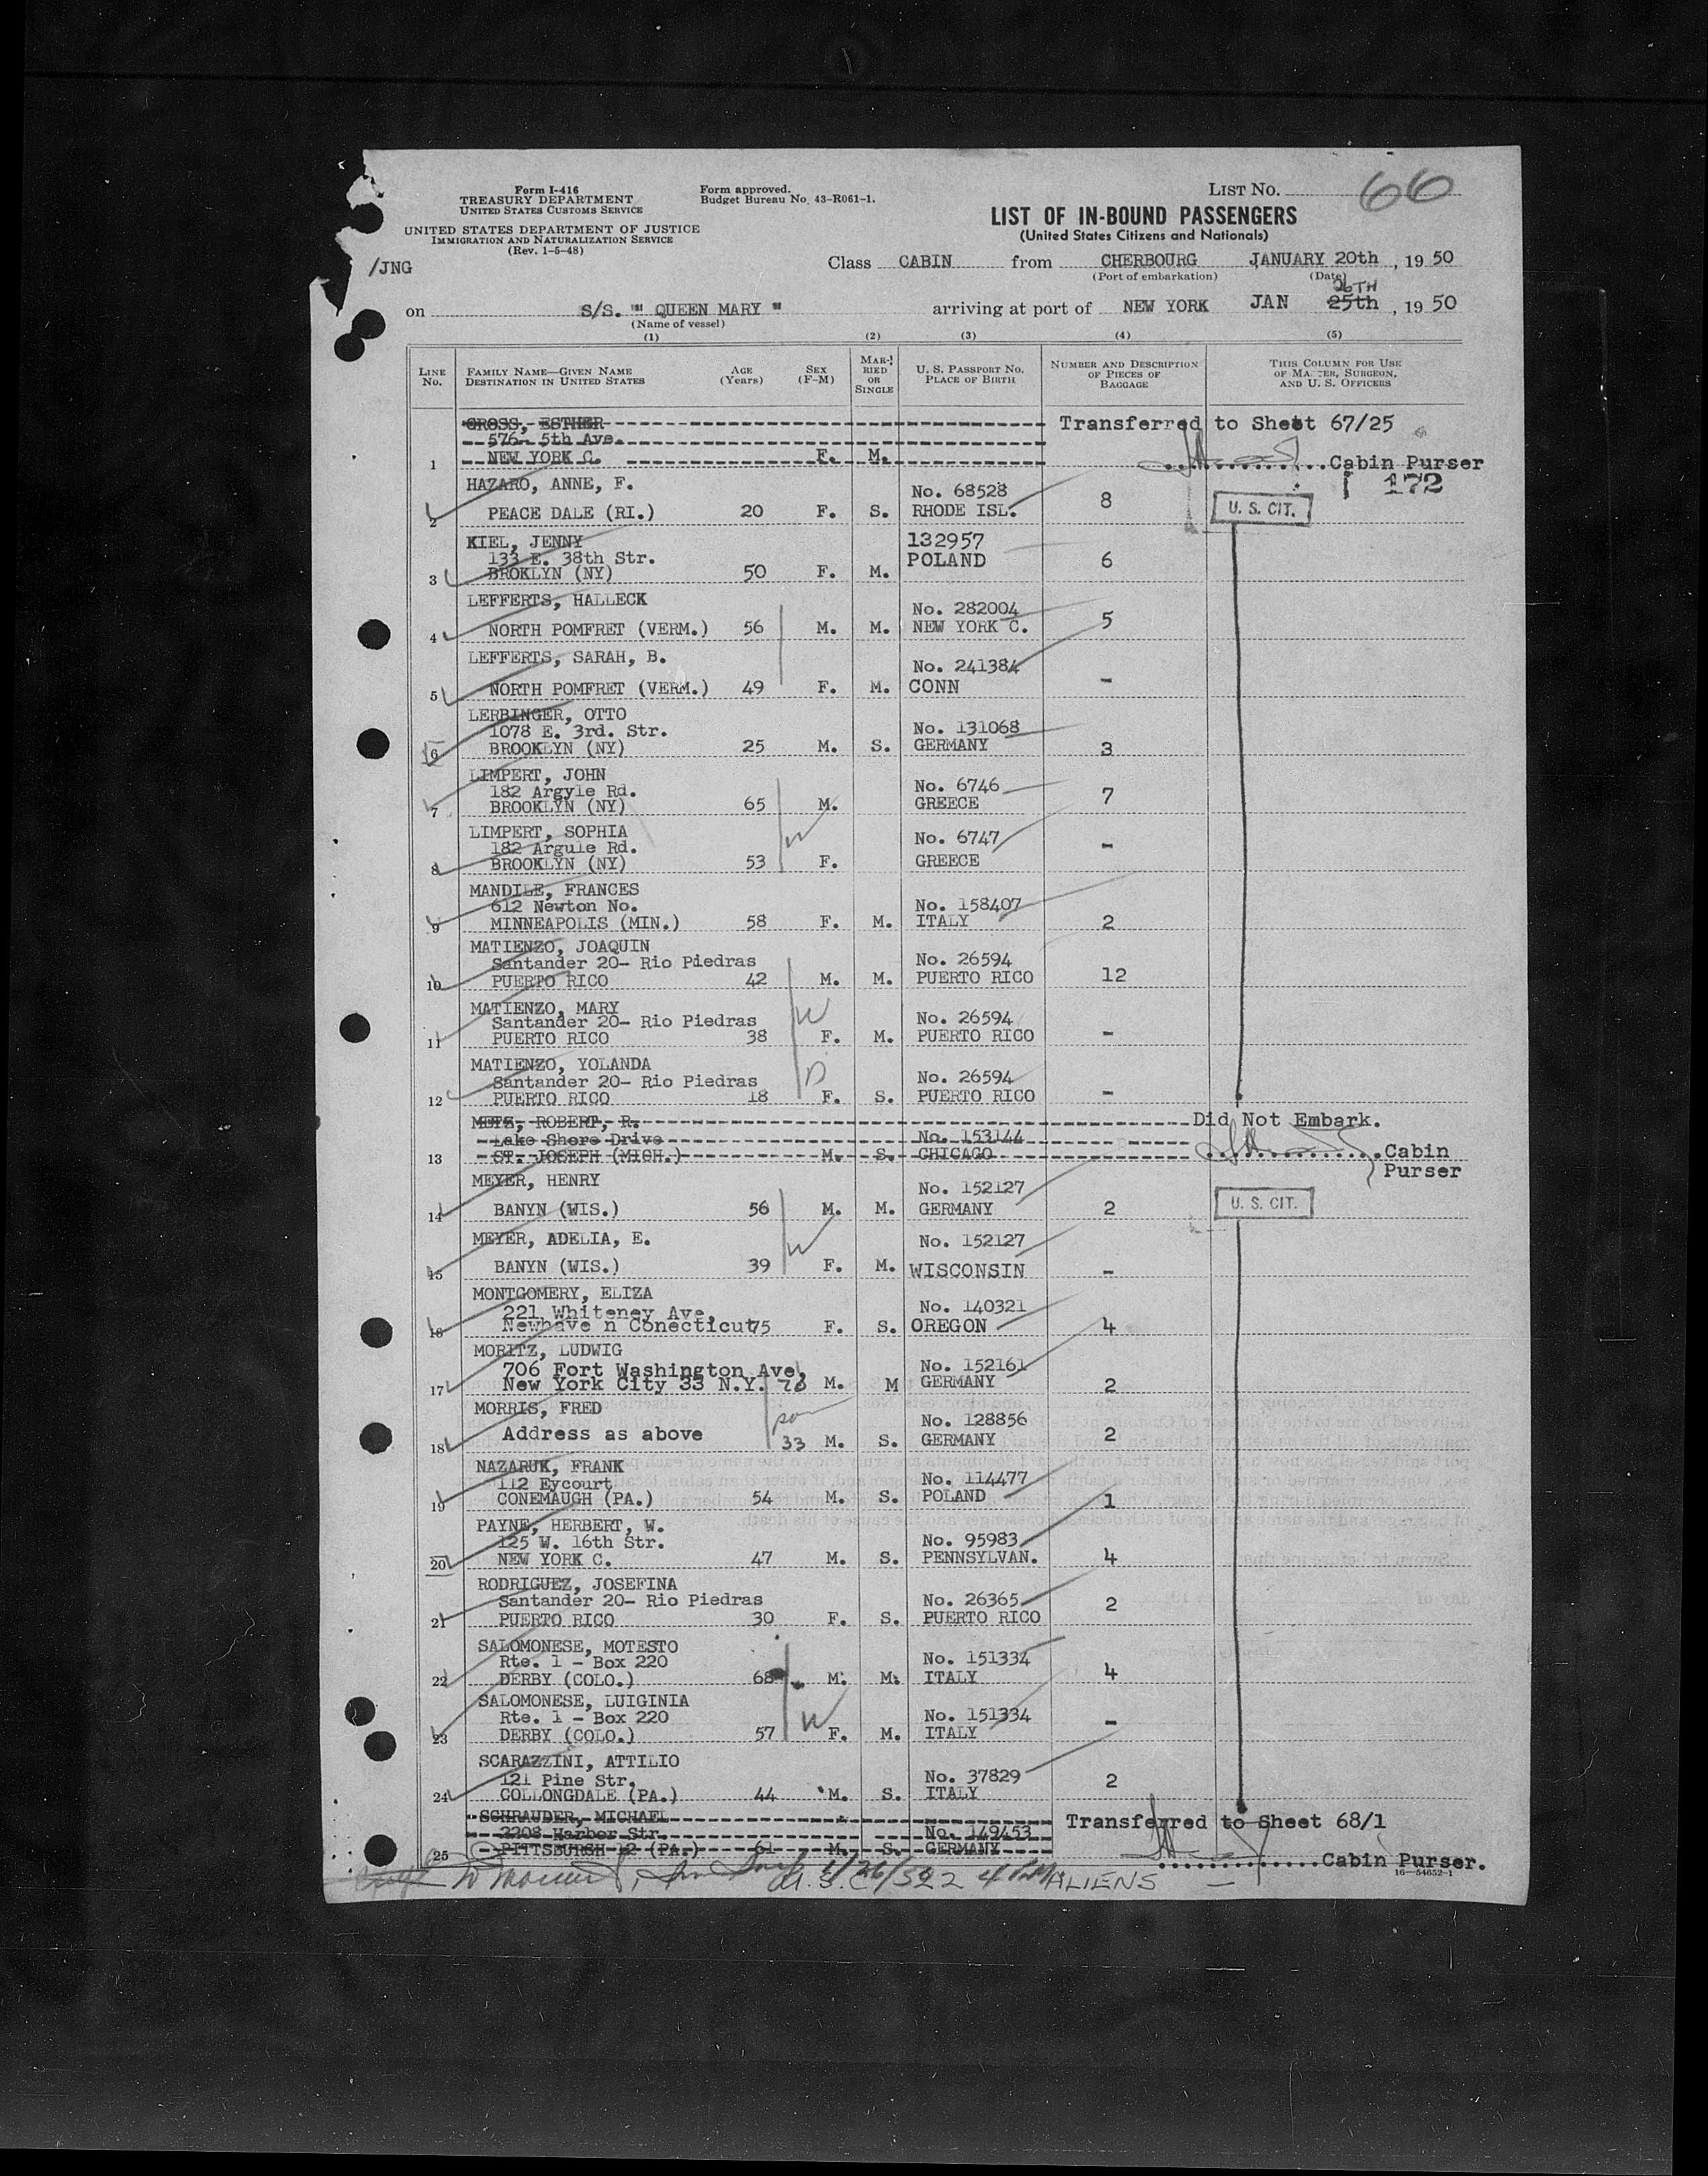 Form I-416
TREASURY DEPARTMENT
UNITED STATES CUSTOMS SERVICE
UNITED STATES DEPARTMENT OF JUSTICE
IMMIGRATION AND NATURALIZATION SERVICE
(Rev. 1-5-48)
Form approved.
Budget Bureau No. 43-R061-1.
LIST NO. 66
LIST OF IN-BOUND PASSENGERS
(United States Citizens and Nationals)
/JNG
Class CABIN from CHERBOURG JANUARY 20th, 19 50
(Port of embarkation) (Date)
26TH
on S/S. " QUEEN MARY " arriving at port of NEW YORK JAN 25th, 19 50
(Name of vessel)
(1) (2) (3) (4) (5)
LINE No. FAMILY NAME—GIVEN NAME DESTINATION IN UNITED STATES AGE (Years) SEX (F-M) MARRIED OR SINGLE U. S. PASSPORT NO. PLACE OF BIRTH NUMBER AND DESCRIPTION OF PIECES OF BAGGAGE THIS COLUMN FOR USE OF MASTER, SURGEON, AND U. S. OFFICERS
GROSS, ESTHER Transferred to Sheet 67/25
576- 5th Ave.
1 NEW YORK C. F. M. Cabin Purser
172
HAZARO, ANNE, F. No. 68528 8
2 PEACE DALE (RI.) 20 F. S. RHODE ISL. U. S. CIT.
KIEL, JENNY 132957
133 E. 38th Str. POLAND 6
3 BROKLYN (NY) 50 F. M.
LEFFERTS, HALLECK No. 282004 5
4 NORTH POMFRET (VERM.) 56 M. M. NEW YORK C.
LEFFERTS, SARAH, B. No. 241384
5 NORTH POMFRET (VERM.) 49 F. M. CONN -
LERBINGER, OTTO
1078 E. 3rd. Str. No. 131068
6 BROOKLYN (NY) 25 M. S. GERMANY 3
LIMPERT, JOHN
182 Argyle Rd. No. 6746 7
7 BROOKLYN (NY) 65 M. GREECE
LIMPERT, SOPHIA
182 Argule Rd. No. 6747 -
8 BROOKLYN (NY) 53 W F. GREECE
MANDILE, FRANCES
612 Newton No. No. 158407
9 MINNEAPOLIS (MIN.) 58 F. M. ITALY 2
MATIENZO, JOAQUIN
Santander 20- Rio Piedras No. 26594
10 PUERTO RICO 42 M. M. PUERTO RICO 12
MATIENZO, MARY
Santander 20- Rio Piedras W No. 26594
11 PUERTO RICO 38 F. M. PUERTO RICO -
MATIENZO, YOLANDA
Santander 20- Rio Piedras D No. 26594
12 PUERTO RICO 18 F. S. PUERTO RICO -
METZ, ROBERT, R. Did Not Embark.
Lake Shore Drive No. 153144
13 ST. JOSEPH (MICH.) M. S. CHICAGO Cabin
Purser
MEYER, HENRY No. 152127
14 BANYN (WIS.) 56 M. M. GERMANY 2 U. S. CIT.
MEYER, ADELIA, E. No. 152127
15 BANYN (WIS.) 39 W F. M. WISCONSIN -
MONTGOMERY, ELIZA
221 Whiteney Ave, No. 140321
16 Newhave n Conecticut 75 F. S. OREGON 4
MORITZ, LUDWIG
706 Fort Washington Ave, No. 152161
17 New York City 33 N.Y. M. M GERMANY 2
MORRIS, FRED No. 128856
18 Address as above son 33 M. S. GERMANY 2
NAZARUK, FRANK
112 Eycourt No. 114477
19 CONEMAUGH (PA.) 54 M. S. POLAND 1
PAYNE, HERBERT, W.
125 W. 16th Str. No. 95983
20 NEW YORK C. 47 M. S. PENNSYLVAN. 4
RODRIGUEZ, JOSEFINA
Santander 20- Rio Piedras No. 26365 2
21 PUERTO RICO 30 F. S. PUERTO RICO
SALOMONESE, MOTESTO
Rte. 1 - Box 220 No. 151334 4
22 DERBY (COLO.) 68 M. M. ITALY
SALOMONESE, LUIGINIA
Rte. 1 - Box 220 W No. 151334 -
23 DERBY (COLO.) 57 F. M. ITALY
SCARAZZINI, ATTILIO
121 Pine Str. No. 37829 2
24 COLLONGDALE (PA.) 44 M. S. ITALY
SCHRAUDER, MICHAEL Transferred to Sheet 68/1
2208 Harbor Str. No. 149453
25 PITTSBURGH 12 (PA.) 61 M. S. GERMANY Cabin Purser.
16-54652-1
1/26/50
U.S.C. 22 ALIENS -